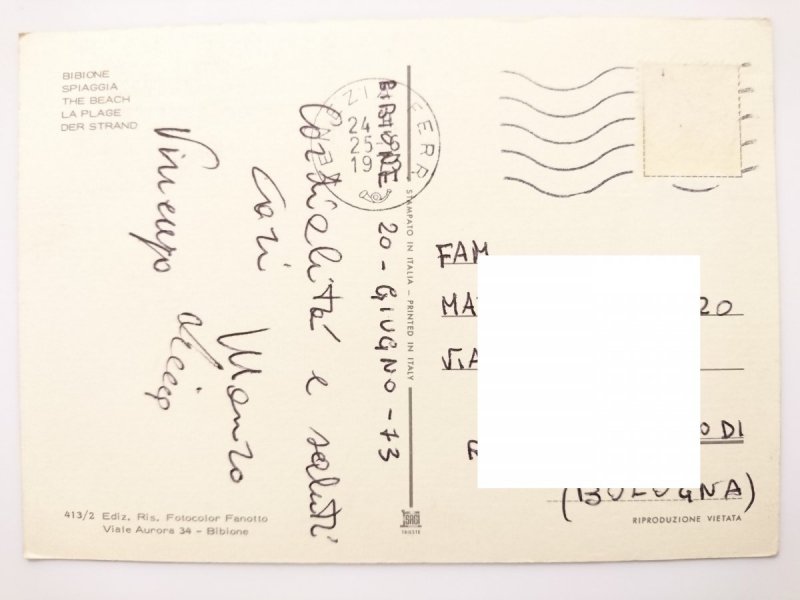 BIBIONE
SPIAGGIA
THE BEACH
LA PLAGE
DER STRAND
BIBIONE 20-GIUGNO-73
Cordialità e saluti
cari
Vincenzo
24
25-
19
FERR
STAMPATO IN ITALIA — PRINTED IN ITALY
FAM
MA 20
VIA
DI
(BOLOGNA)
413/2 Ediz. Ris. Fotocolor Fanotto
Viale Aurora 34 - Bibione
TRIESTE
RIPRODUZIONE VIETATA